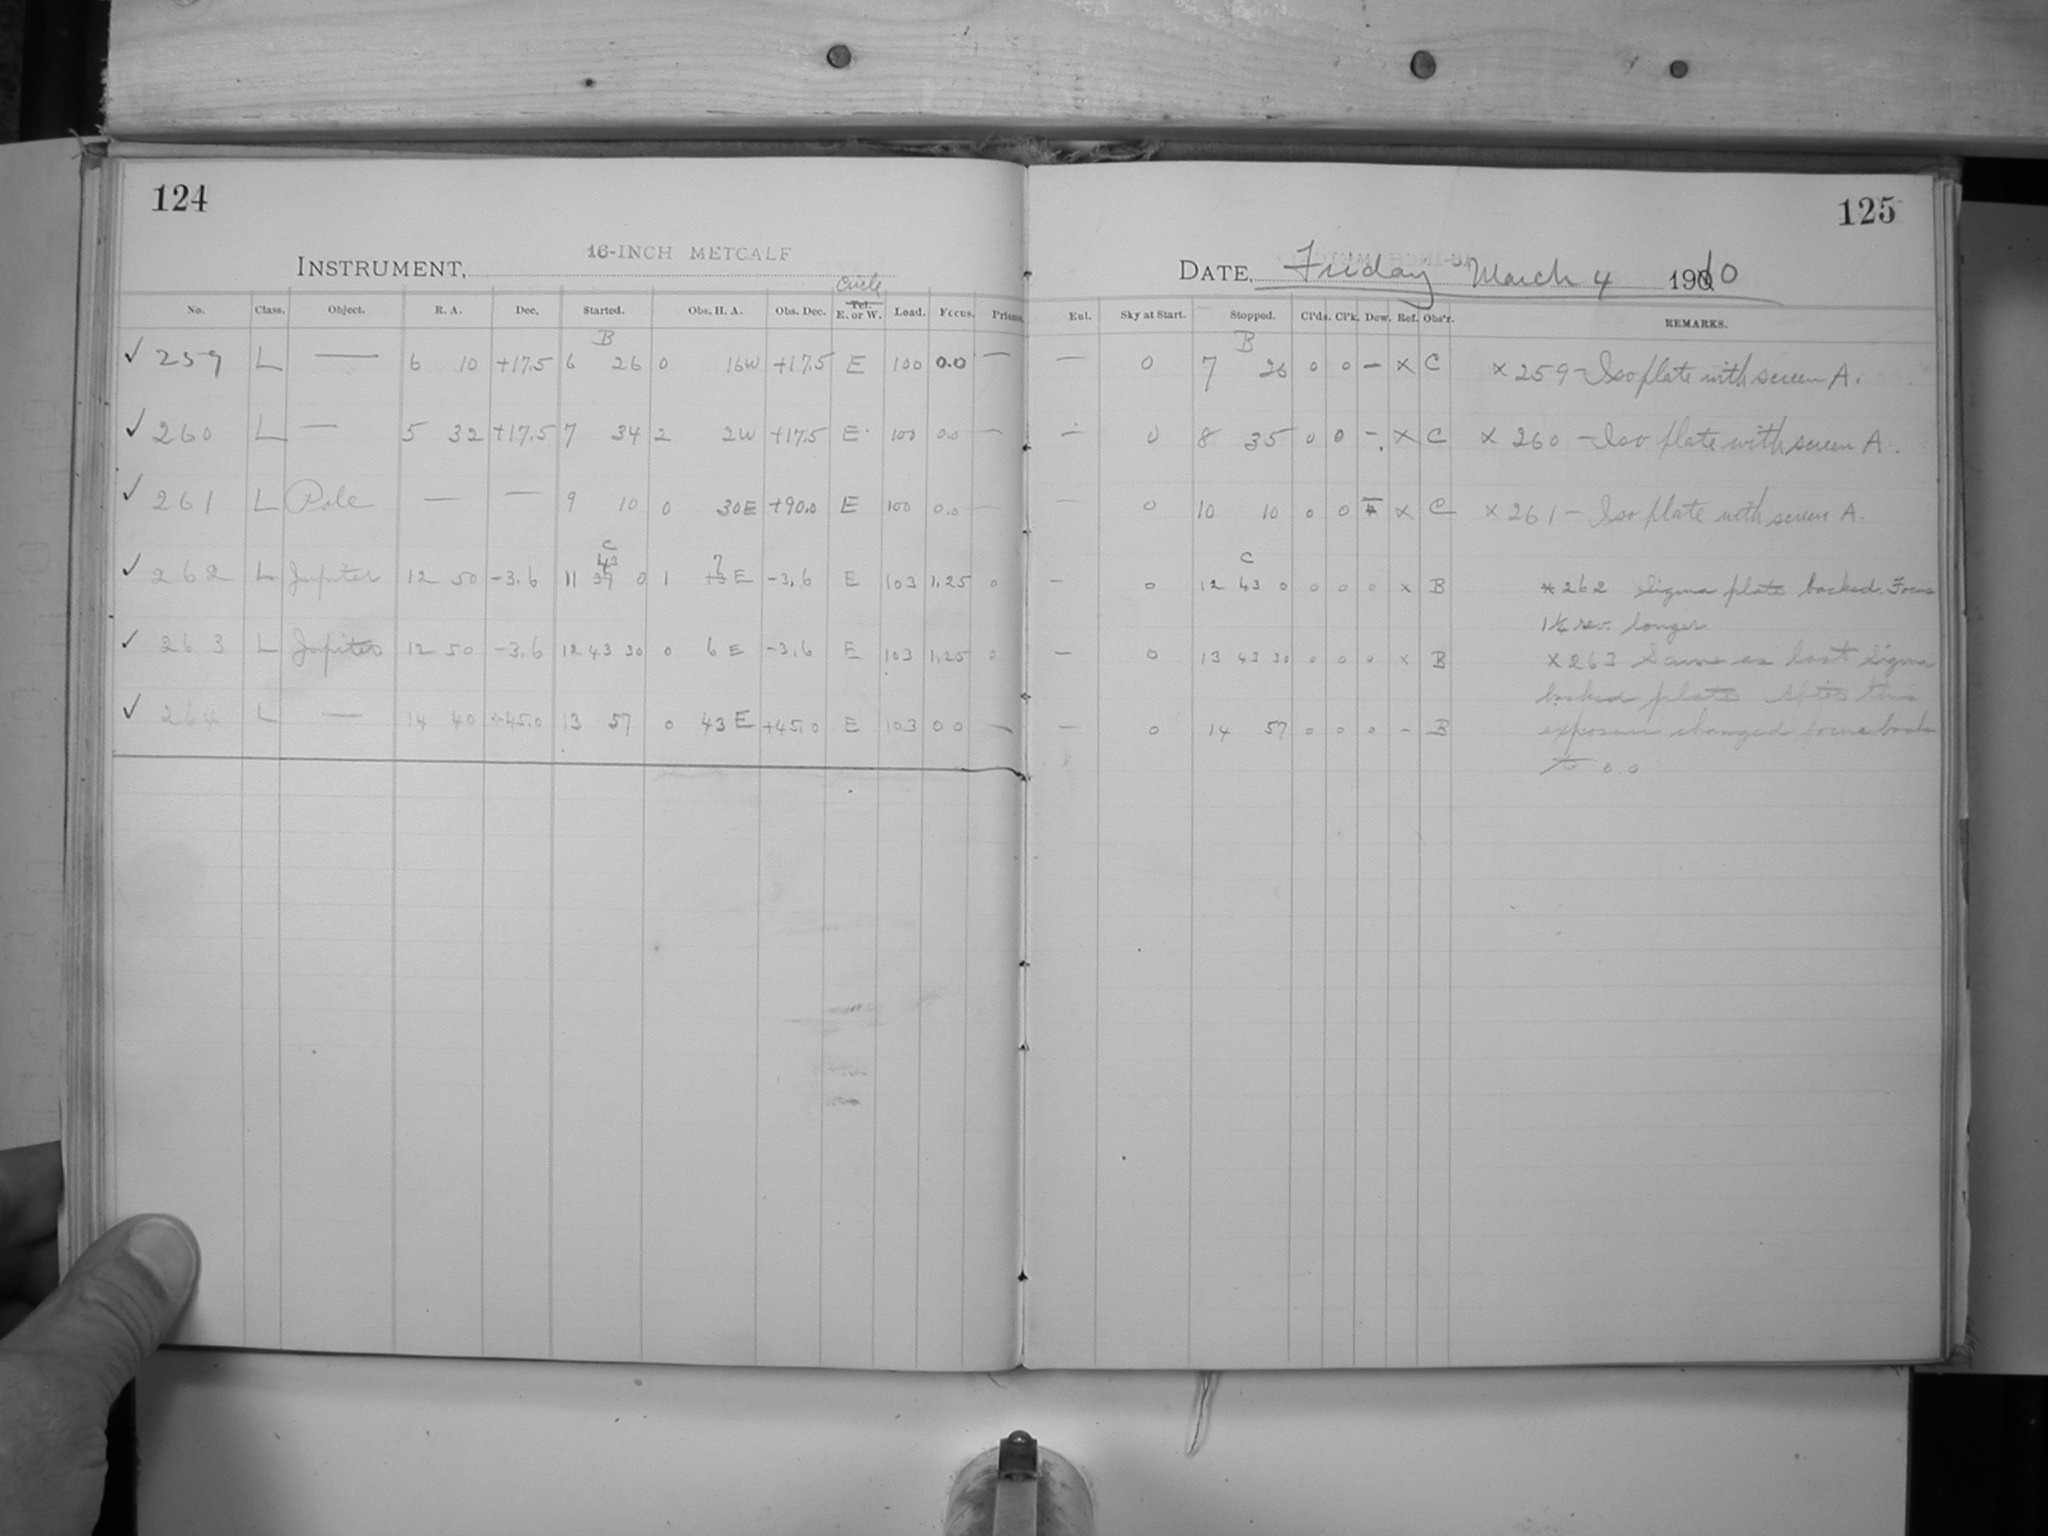 124
125
INSTRUMENT, 16-INCH METCALF
DATE, Friday March 4 1910
Circle
No. Class. Object. R. A. Dec. Started. Obs. H. A. Obs. Dec. Tel. E. or W. Load. Focus. Prisms.
Eul. Sky at Start. Stopped. Cl'ds. Cl'k. Dew. Ref. Obs'r. REMARKS.
B
B
✓ 259 L — 6 10 +17.5 6 26 0 16W +17.5 E 100 0.0 — — 0 7 26 0 0 — × C × 259 - Iso plate with screen A.
✓ 260 L — 5 32 +17.5 7 34 2 2W +17.5 E 100 0.0 — — 0 8 35 0 0 — × C × 260 - Iso plate with screen A.
✓ 261 L Pole — — 9 10 0 30E +90.0 E 100 0.0 — — 0 10 10 0 0 — × C × 261 - Iso plate with screen A.
C
C
43 7
✓ 262 L Jupiter 12 50 -3.6 11 39 0 1 13 E -3.6 E 103 1.25 0 — 0 12 43 0 0 0 0 × B × 262 Sigma plate backed. Focus
1¼ rev. longer
✓ 263 L Jupiter 12 50 -3.6 12 43 30 0 6 E -3.6 E 103 1.25 0 — 0 13 43 30 0 0 0 × B × 263 Same as last Sigma
backed plate After this
✓ 264 L — 14 40 +45.0 13 57 0 43 E +45.0 E 103 0.0 — — 0 14 57 0 0 0 – B exposure changed focus back
to 0.0